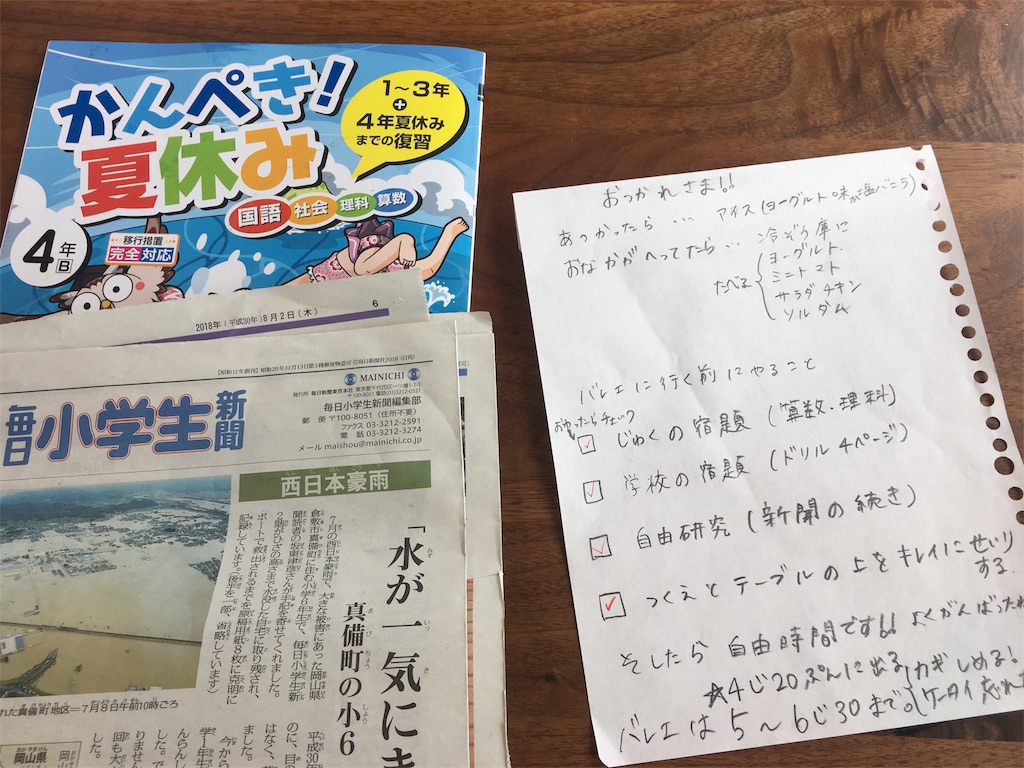 かんぺき!
夏休み
1~3年
+
4年夏休み
までの復習
国語 社会 理科 算数
4年B
移行措置
完全対応
2018年(平成30年)8月2日(木)
6
【昭和11年創刊】昭和20年11月13日第3種郵便物認可 ©毎日新聞社2018(日刊)
MAINICHI
発行所 毎日新聞東京本社 東京都千代田区一ツ橋1-1-1
〒100-8051 電話(03)3212-0321
毎日小学生新聞編集部
郵便 〒100-8051(住所不要)
ファクス 03-3212-2591
電話 03-3212-3274
メール maishou@mainichi.co.jp
毎日小学生新聞
西日本豪雨
「水が一気にま
真備町の小6
7月の西日本豪雨で、大きな被害にあった岡山県
倉敷市真備町に住む小学6年生で、毎日小学生新
聞読者の坂東
さんが手記を寄せてくれました。
2階がひざの高さまで水没した自宅に取り残され、
ボートで救出されるまでを原稿用紙8枚に克明に
記録しています。(後半を一部、省略しています)
れた真備町地区=7月8日午前10時ごろ
平成30年
のに、目の
はなく、茶
ました。
今から
学1年生
らんらし
りません
回も大
した。
岡山県
おつかれさま!!
あつかったら … アイス(ヨーグルト味が塩バニラ)
おなかがへってたら… 冷ぞう庫に
たべる
ヨーグルト
ミニトマト
サラダチキン
ソルダム
バレエに行く前にやること
おわったらチェック
じゅくの宿題(算数・理科)
学校の宿題(ドリル4ページ)
自由研究(新聞の続き)
つくえとテーブルの上をキレイにせいり
する.
そしたら自由時間です!! よくがんばったね
☆4じ20ぷんに出る カギしめる!
バレエは5~6じ30まで。(ケータイ忘れ